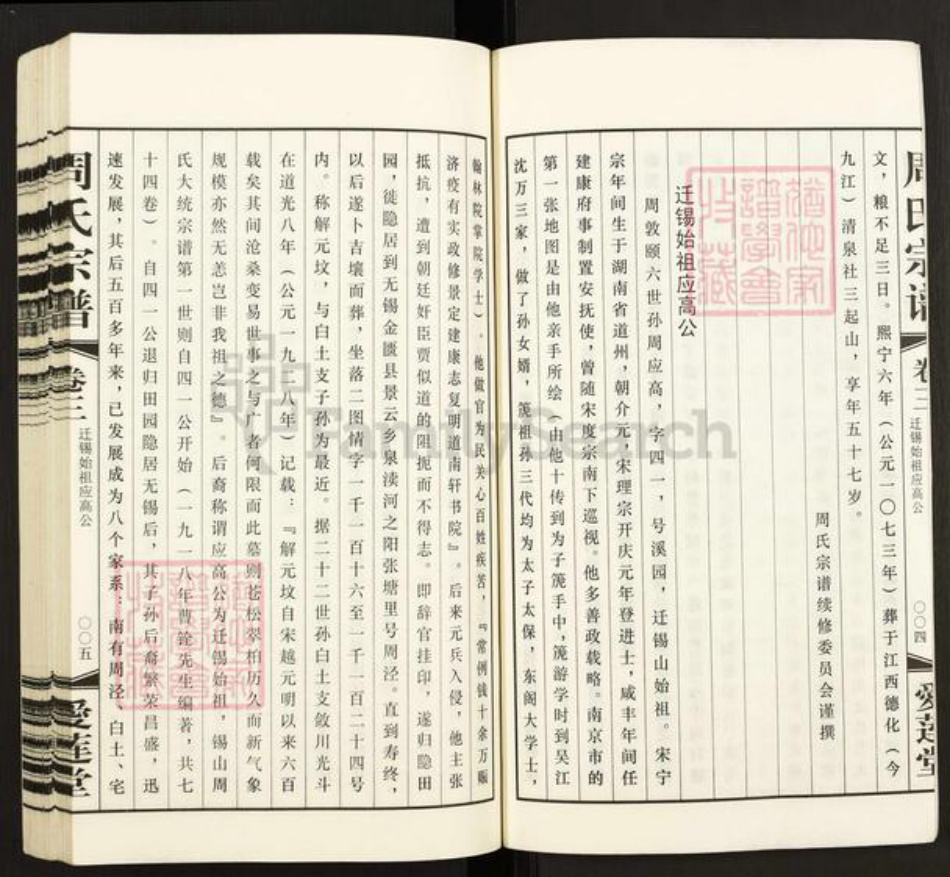 周氏宗谱
卷三
迁锡始祖应高公
〇〇四
爱莲堂
文，粮不足三日。熙宁六年（公元一〇七三年）葬于江西德化（今
九江）清泉社三起山，享年五十七岁。
周氏宗谱续修委员会谨撰
迁锡始祖应高公
周敦颐六世孙周应高，字四一，号溪园，迁锡山始祖。宋宁
宗年间生于湖南省道州，朝介元，宋理宗开庆元年登进士，咸丰年间任
建康府事制置安抚使，曾随宋度宗南下巡视。他多善政载略。南京市的
第一张地图是由他亲手所绘（由他十传到为子篪手中，篪游学时到吴江
沈万三家，做了孙女婿，篪祖孙三代均为太子太保，东阁大学士，
翰林院掌院学士）。他做官为民关心百姓疾苦，『常例钱十余万赈
济疫有实政修景定建康志复明道南轩书院』。后来元兵入侵，他主张
抵抗，遭到朝廷奸臣贾似道的阻扼而不得志。即辞官挂印，遂归隐田
园，徙隐居到无锡金匮县景云乡泉渎河之阳张塘里号周泾。直到寿终，
以后遂卜吉壤而葬，坐落二图情字一千一百十六至一千一百二十四号
内。称解元坟，与白土支子孙为最近。据二十二世孙白土支敛川光斗
在道光八年（公元一九二八年）记载：『解元坟自宋越元明以来六百
载矣其间沧桑变易世事之与广者何限而此墓则苍松翠柏历久而新气象
规模亦然无恙岂非我祖之德』。后裔称谓应高公为迁锡始祖，锡山周
氏大统宗谱第一世则自四一公开始（一九一八年曹铨先生编著，共七
十四卷）。自四一公退归田园隐居无锡后，其子孙后裔繁荣昌盛，迅
速发展，其后五百多年来，已发展成为八个家系：南有周泾、白土、宅
周氏宗谱
卷三
迁锡始祖应高公
〇〇五
爱莲堂
FamilySearch